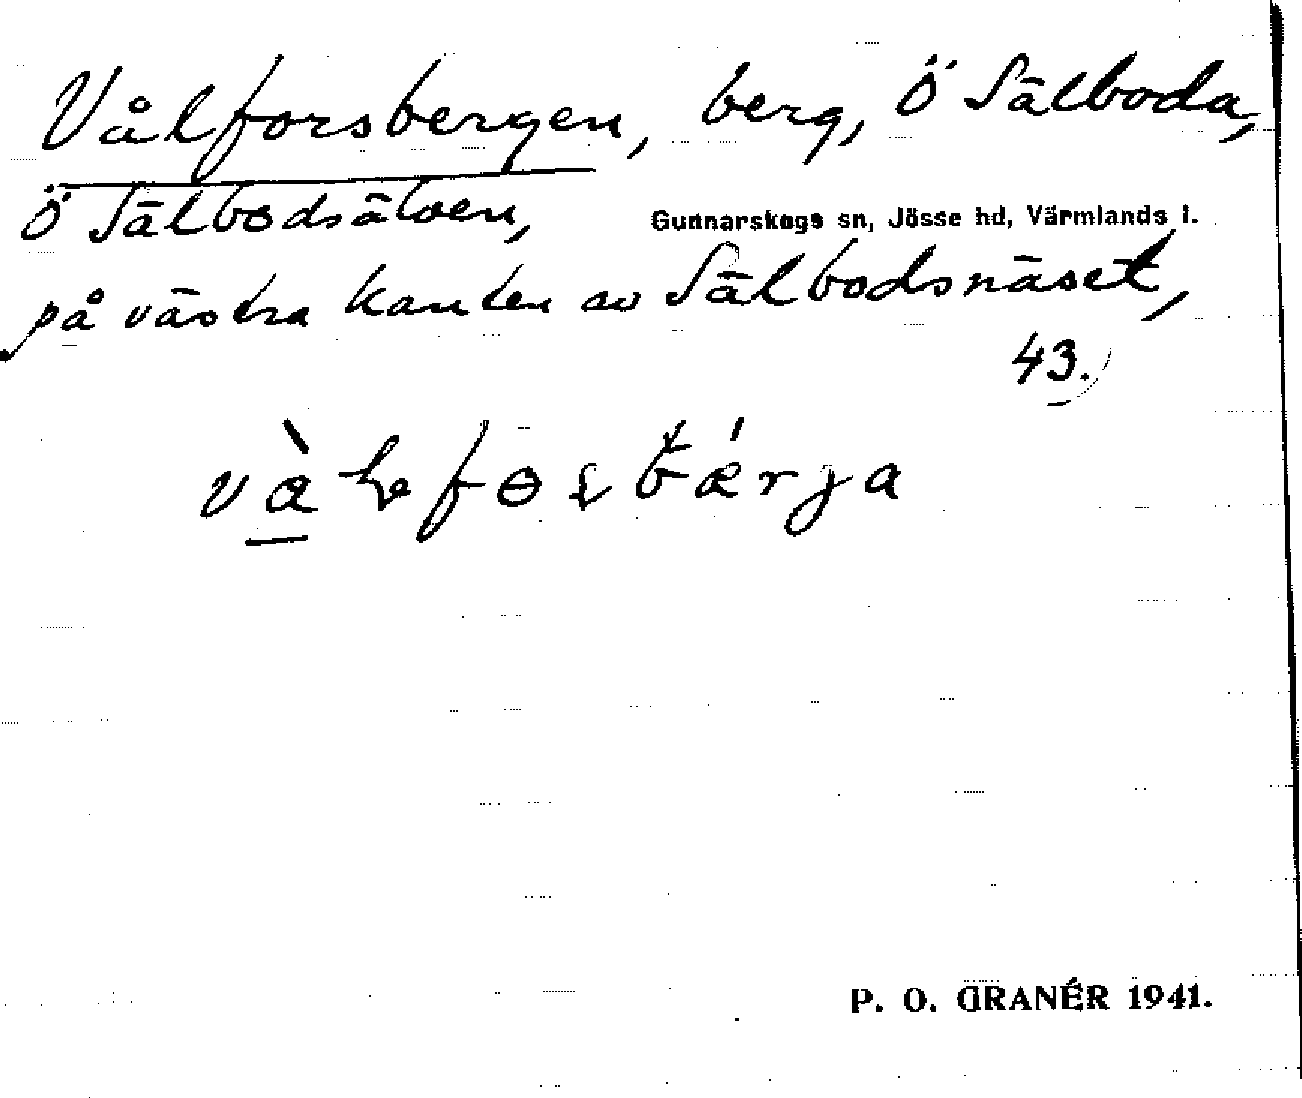 Vålforsbergen, berg, Ö Sälboda,
Ö Sälbodsälven, Gunnarskogs sn, Jösse hd, Värmlands l.
på västra kanten av Sälbodsnäset,
43.
P. O. GRANÉR 1941.